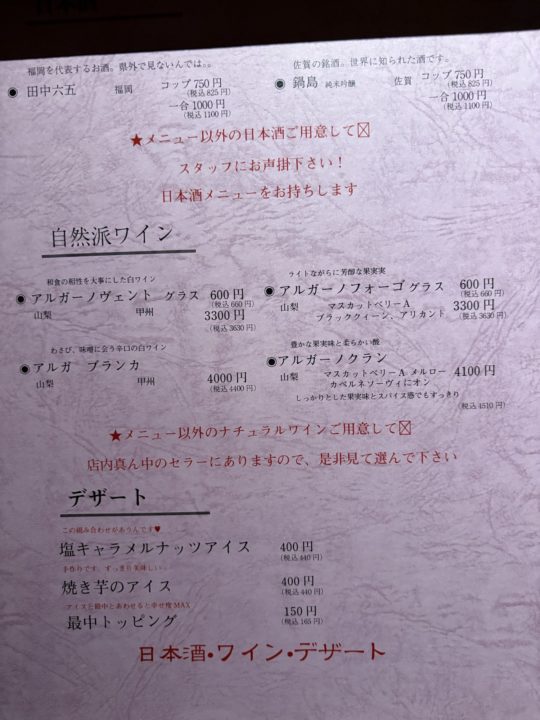 福岡を代表するお酒。県外で見ないんでは。。
◉ 田中六五 福岡 コップ 750円
(税込 825円)
一合 1000円
(税込 1100円)
佐賀の銘酒。世界に知られた酒です。
◉ 鍋島 純米吟醸 佐賀 コップ 750円
(税込 825円)
一合 1000円
(税込 1100円)
★メニュー以外の日本酒ご用意して☒
スタッフにお声掛下さい！
日本酒メニューをお持ちします
自然派ワイン
和食の相性を大事にした白ワイン
◉ アルガーノヴェント グラス 600円
(税込 660円)
山梨 甲州 3300円
(税込 3630円)
ライトながらに芳醇な果実実
◉ アルガーノフォーゴ グラス 600円
(税込 660円)
山梨 マスカットベリーA 3300円
ブラッククィーン、アリカント (税込 3630円)
わさび、味噌に会う辛口の白ワイン
◉ アルガ ブランカ
山梨 甲州 4000円
(税込 4400円)
豊かな果実味と柔らかい酸
◉アルガーノクラン
山梨 マスカットベリーA メルロー 4100円
カベルネソーヴィにオン
しっかりとした果実味とスパイス感でもすっきり
(税込 4510円)
★メニュー以外のナチュラルワインご用意して☒
店内真ん中のセラーにありますので、是非見て選んで下さい
デザート
この組み合わせがあうんです♥
塩キャラメルナッツアイス 400円
(税込 440円)
手作りです。すっきり美味しい。
焼き芋のアイス 400円
(税込 440円)
アイスと最中とあわせると幸せ度MAX
最中トッピング 150円
(税込 165円)
日本酒・ワイン・デザート